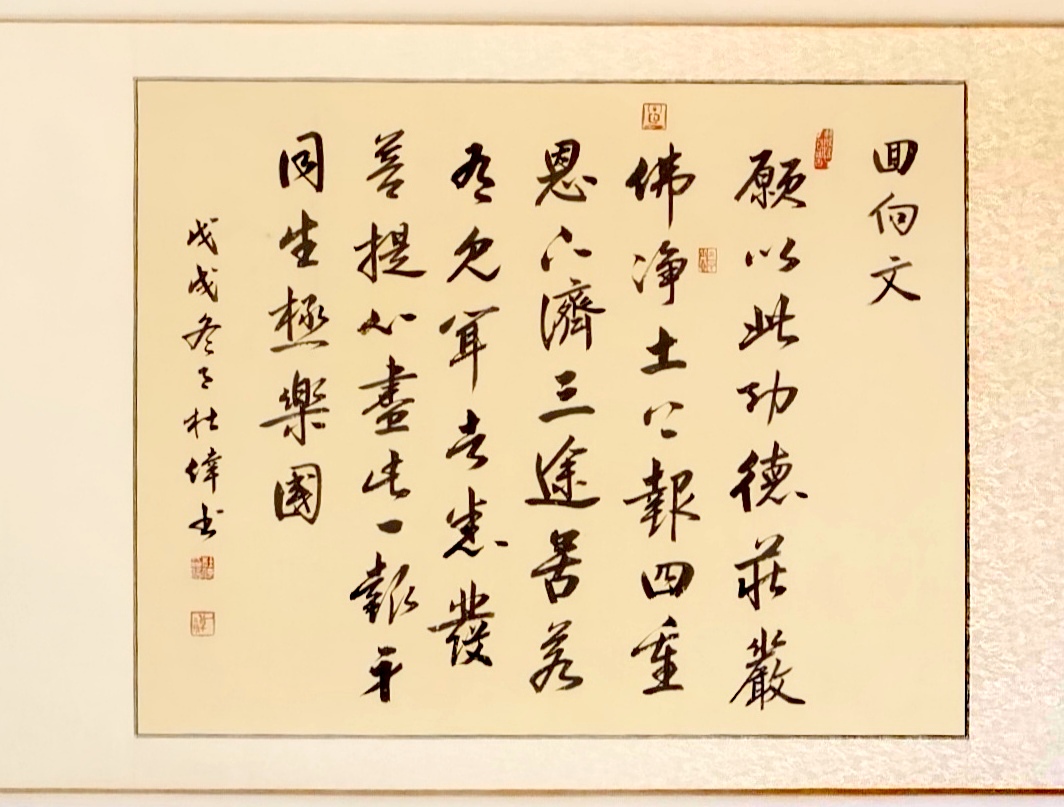 回向文
願以此功德莊嚴
佛淨土上報四重
恩下濟三途苦若
有見聞者悉發
菩提心盡此一報身
同生極樂國
戊戌冬月杜偉书